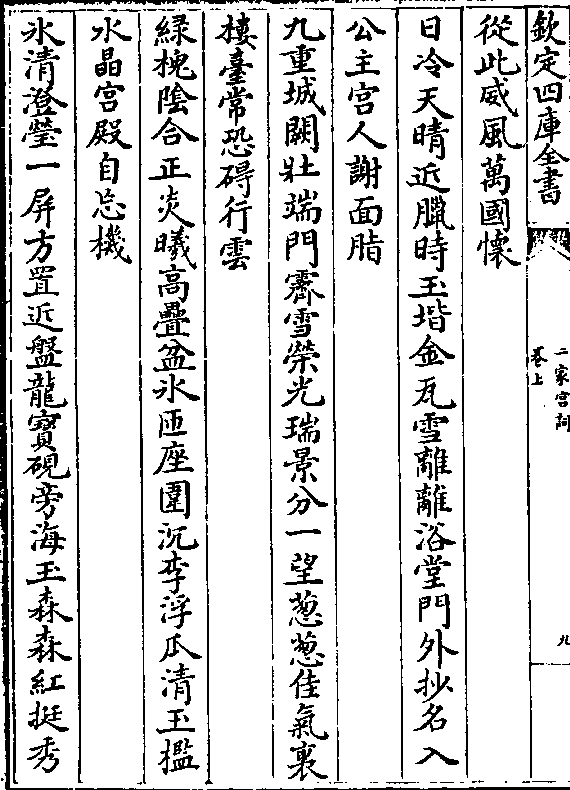 欽定四庫全書
二家宮詞
卷上
九
從此威風萬國懷
日冷天晴近臘時玉堦金瓦雪離離浴堂門外抄名入
公主宫人謝面脂
九重城闕壯端門霽雪榮光瑞景分一望葱葱佳氣裏
樓臺常恐碍行雲
緑槐陰合正炎曦高疊盆氷匝座圍沉李浮瓜清玉檻
水晶宫殿自忘機
氷清澄瑩一屏方置近盤龍寶硯旁海玉森森紅挺秀